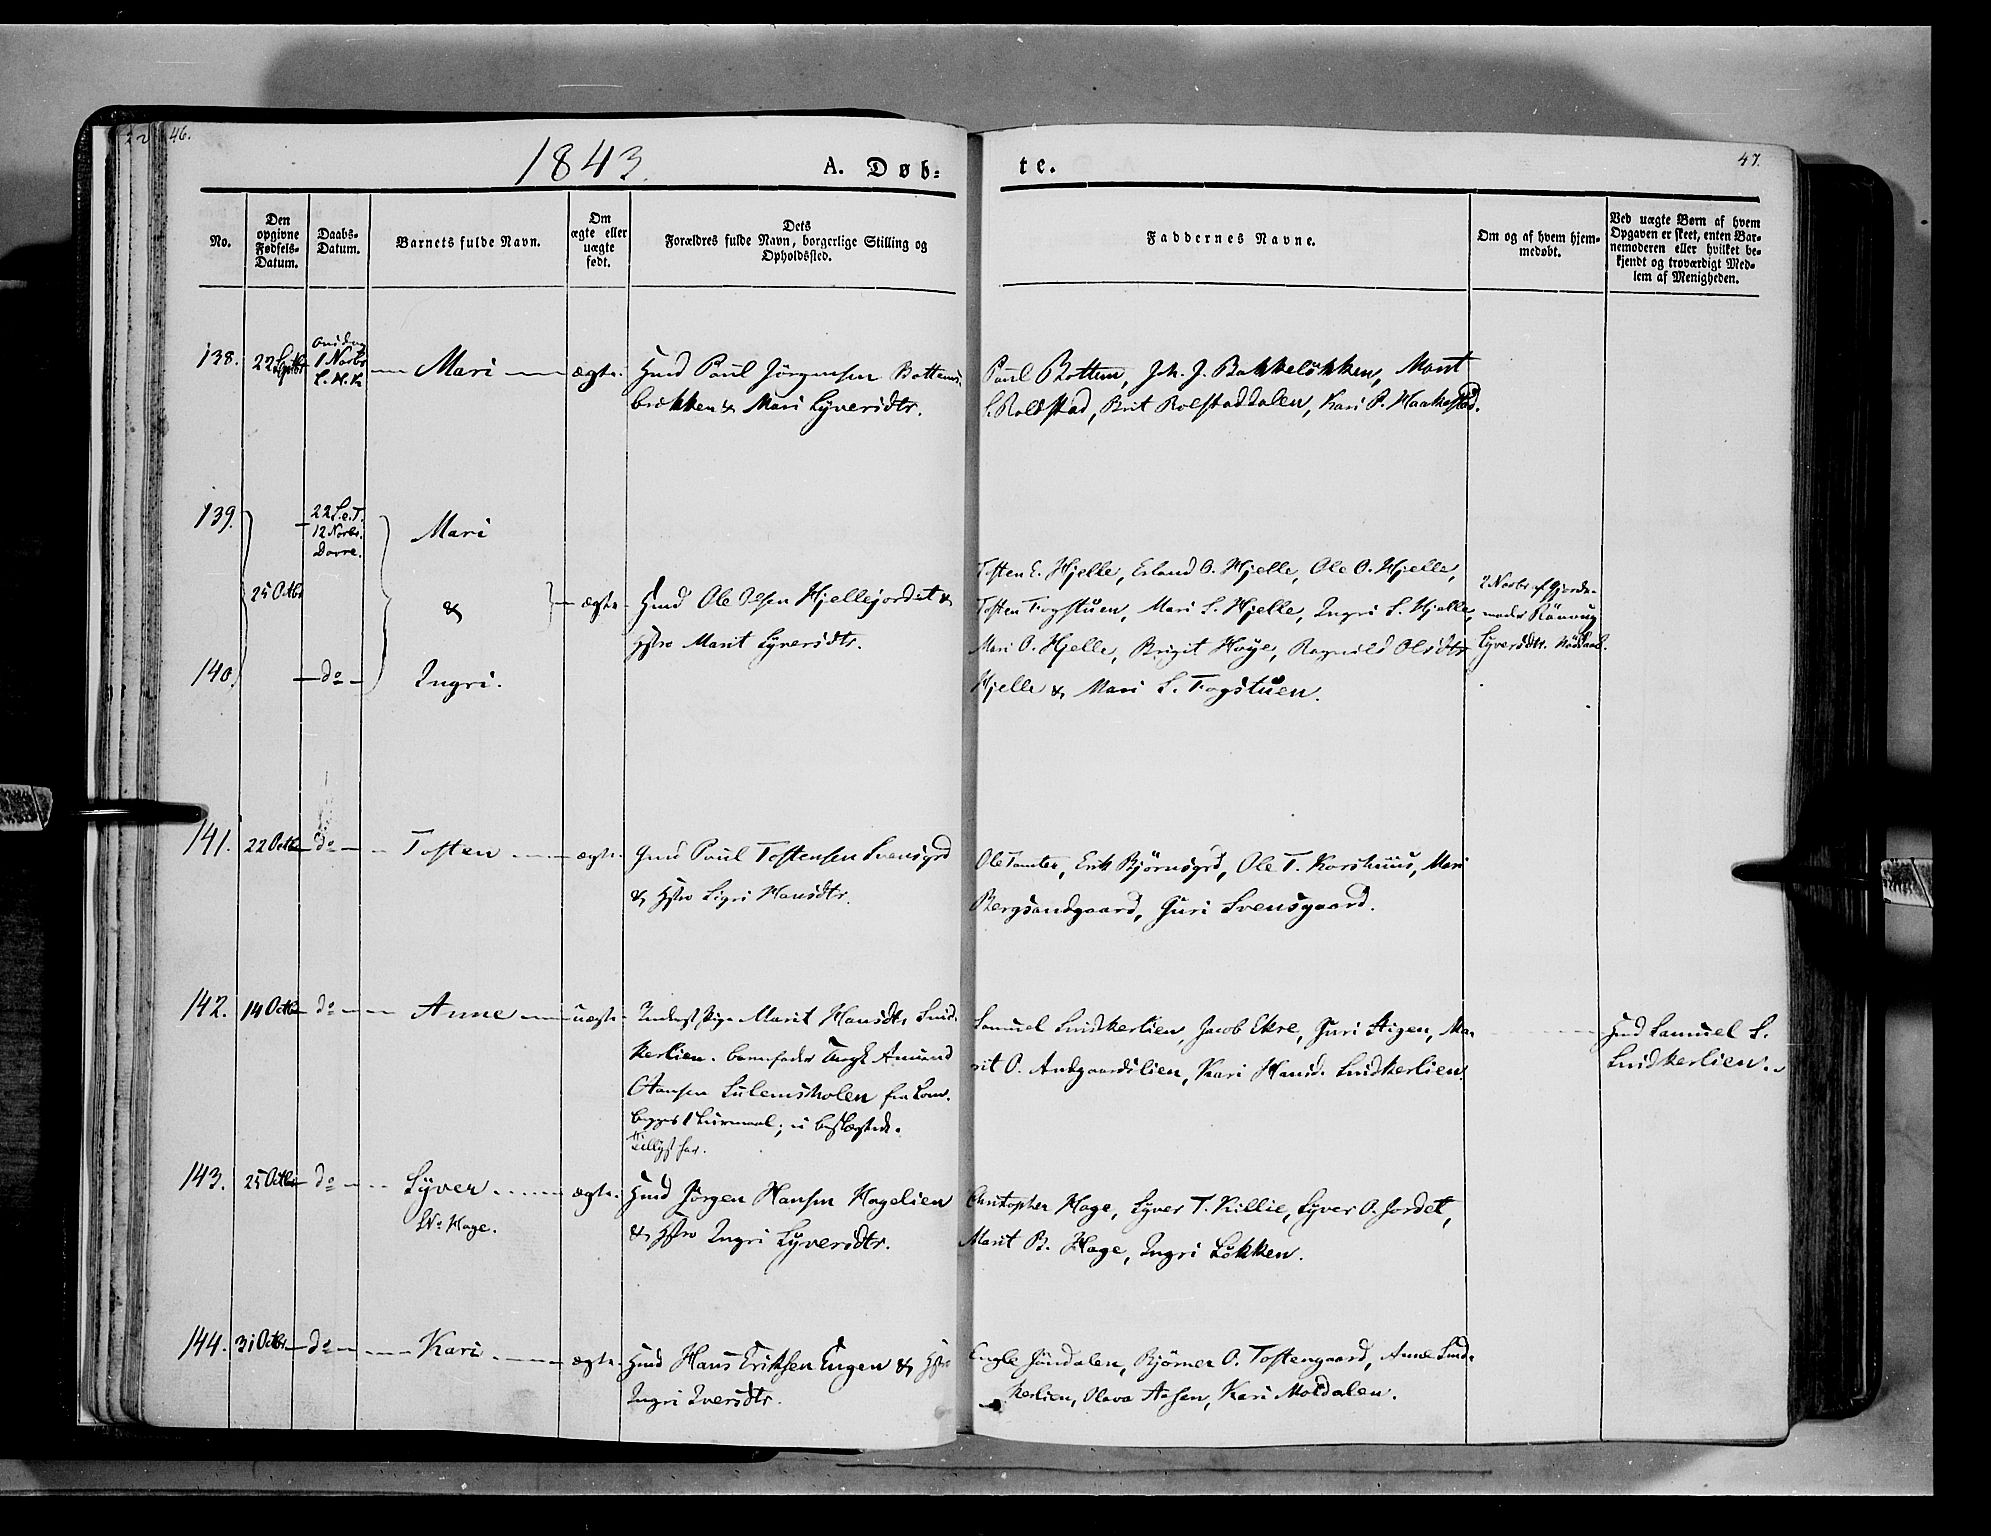 46.
1843.
A. Døb-
te.
47.
No.
Den
opgivne
Fødsels-
Datum.
Daabs-
Datum.
Barnets fulde Navn.
Om
ægte eller
uægte
født.
Dets
Forældres fulde Navn, borgerlige Stilling og
Opholdssted.
Faddernes Navne.
Om og af hvem hjem-
medøbt.
Ved uægte Børn af hvem
Opgaven er skeet, enten Bar-
nemoderen eller hvilket be-
kjendt og troværdigt Med-
lem af Menigheden.
138. 22 Septbr Onsdag
1 Novbr
Mari ægte. Hmd Poul Jörgensen Bottems-
brækken & Mari Syversdtr.
Poul Bottem, Joh. J. Bakkelökken, Marit
S. Rolstad, Brit Rolstaddalen, Kari P. Haakestad.
139. 22 S.e.T.
12 Novbr.
Dovre.
Mari
25 Octbr & ægte Hmd Ole Olsen Hjellejordet &
Hstro Marit Syversdtr.
140. do Ingri.
Tosten E. Hjelle, Erland O. Hjelle, Ole O. Hjelle,
Tosten Fogstuen, Mari S. Hjelle, Ingri S. Hjelle,
Mari O. Hjelle, Brigit Høye, Ragnild Olsdtr
Hjelle & Mari S. Fogstuen.
2 Novbr af Gjorde-
moder Rönnug
Syversdtr.
141. 22 Octbr do Tosten ægte Hmd Poul Tostensen Svensgrd
& Hstro Sigri Hansdtr.
Ole Tomter, Erik Björnsgrd, Ole T. Korshuus, Mari
Bergsandgaard, Guri Svensgaard.
142. 14 Octbr do Anne uægte Inderst Pige Marit Hansdtr Snid-
kerlien. barnefader Ungk Amund
Hansen Sulemsholen fra Lom.
begges 1 Leiermaal;
Samuel Snidkerlien, Jacob Ekre, Guri Stigen, Ma-
rit O. Andgaardslien, Kari Hansd. Snidkerlien.
Hmd Samuel S.
Snidkerlien.
143. 25 Octbr do Syver ægte. Hmd Jörgen Hansen Hagelien
No Hage.
& Hstro Ingri Syversdtr.
Christopher Hage, Syver T. Killie, Syver O. Jordet,
Marit B. Hage, Ingri Lökken.
144. 31 Octbr do Kari ægte Hmd Hans Eriksen Engen & Hstro
Ingri Iversdtr.
Engle Jöndalen, Björner O. Tostengaard, Anne Snid-
kerlien, Olava Aasen, Kari Moldalen.